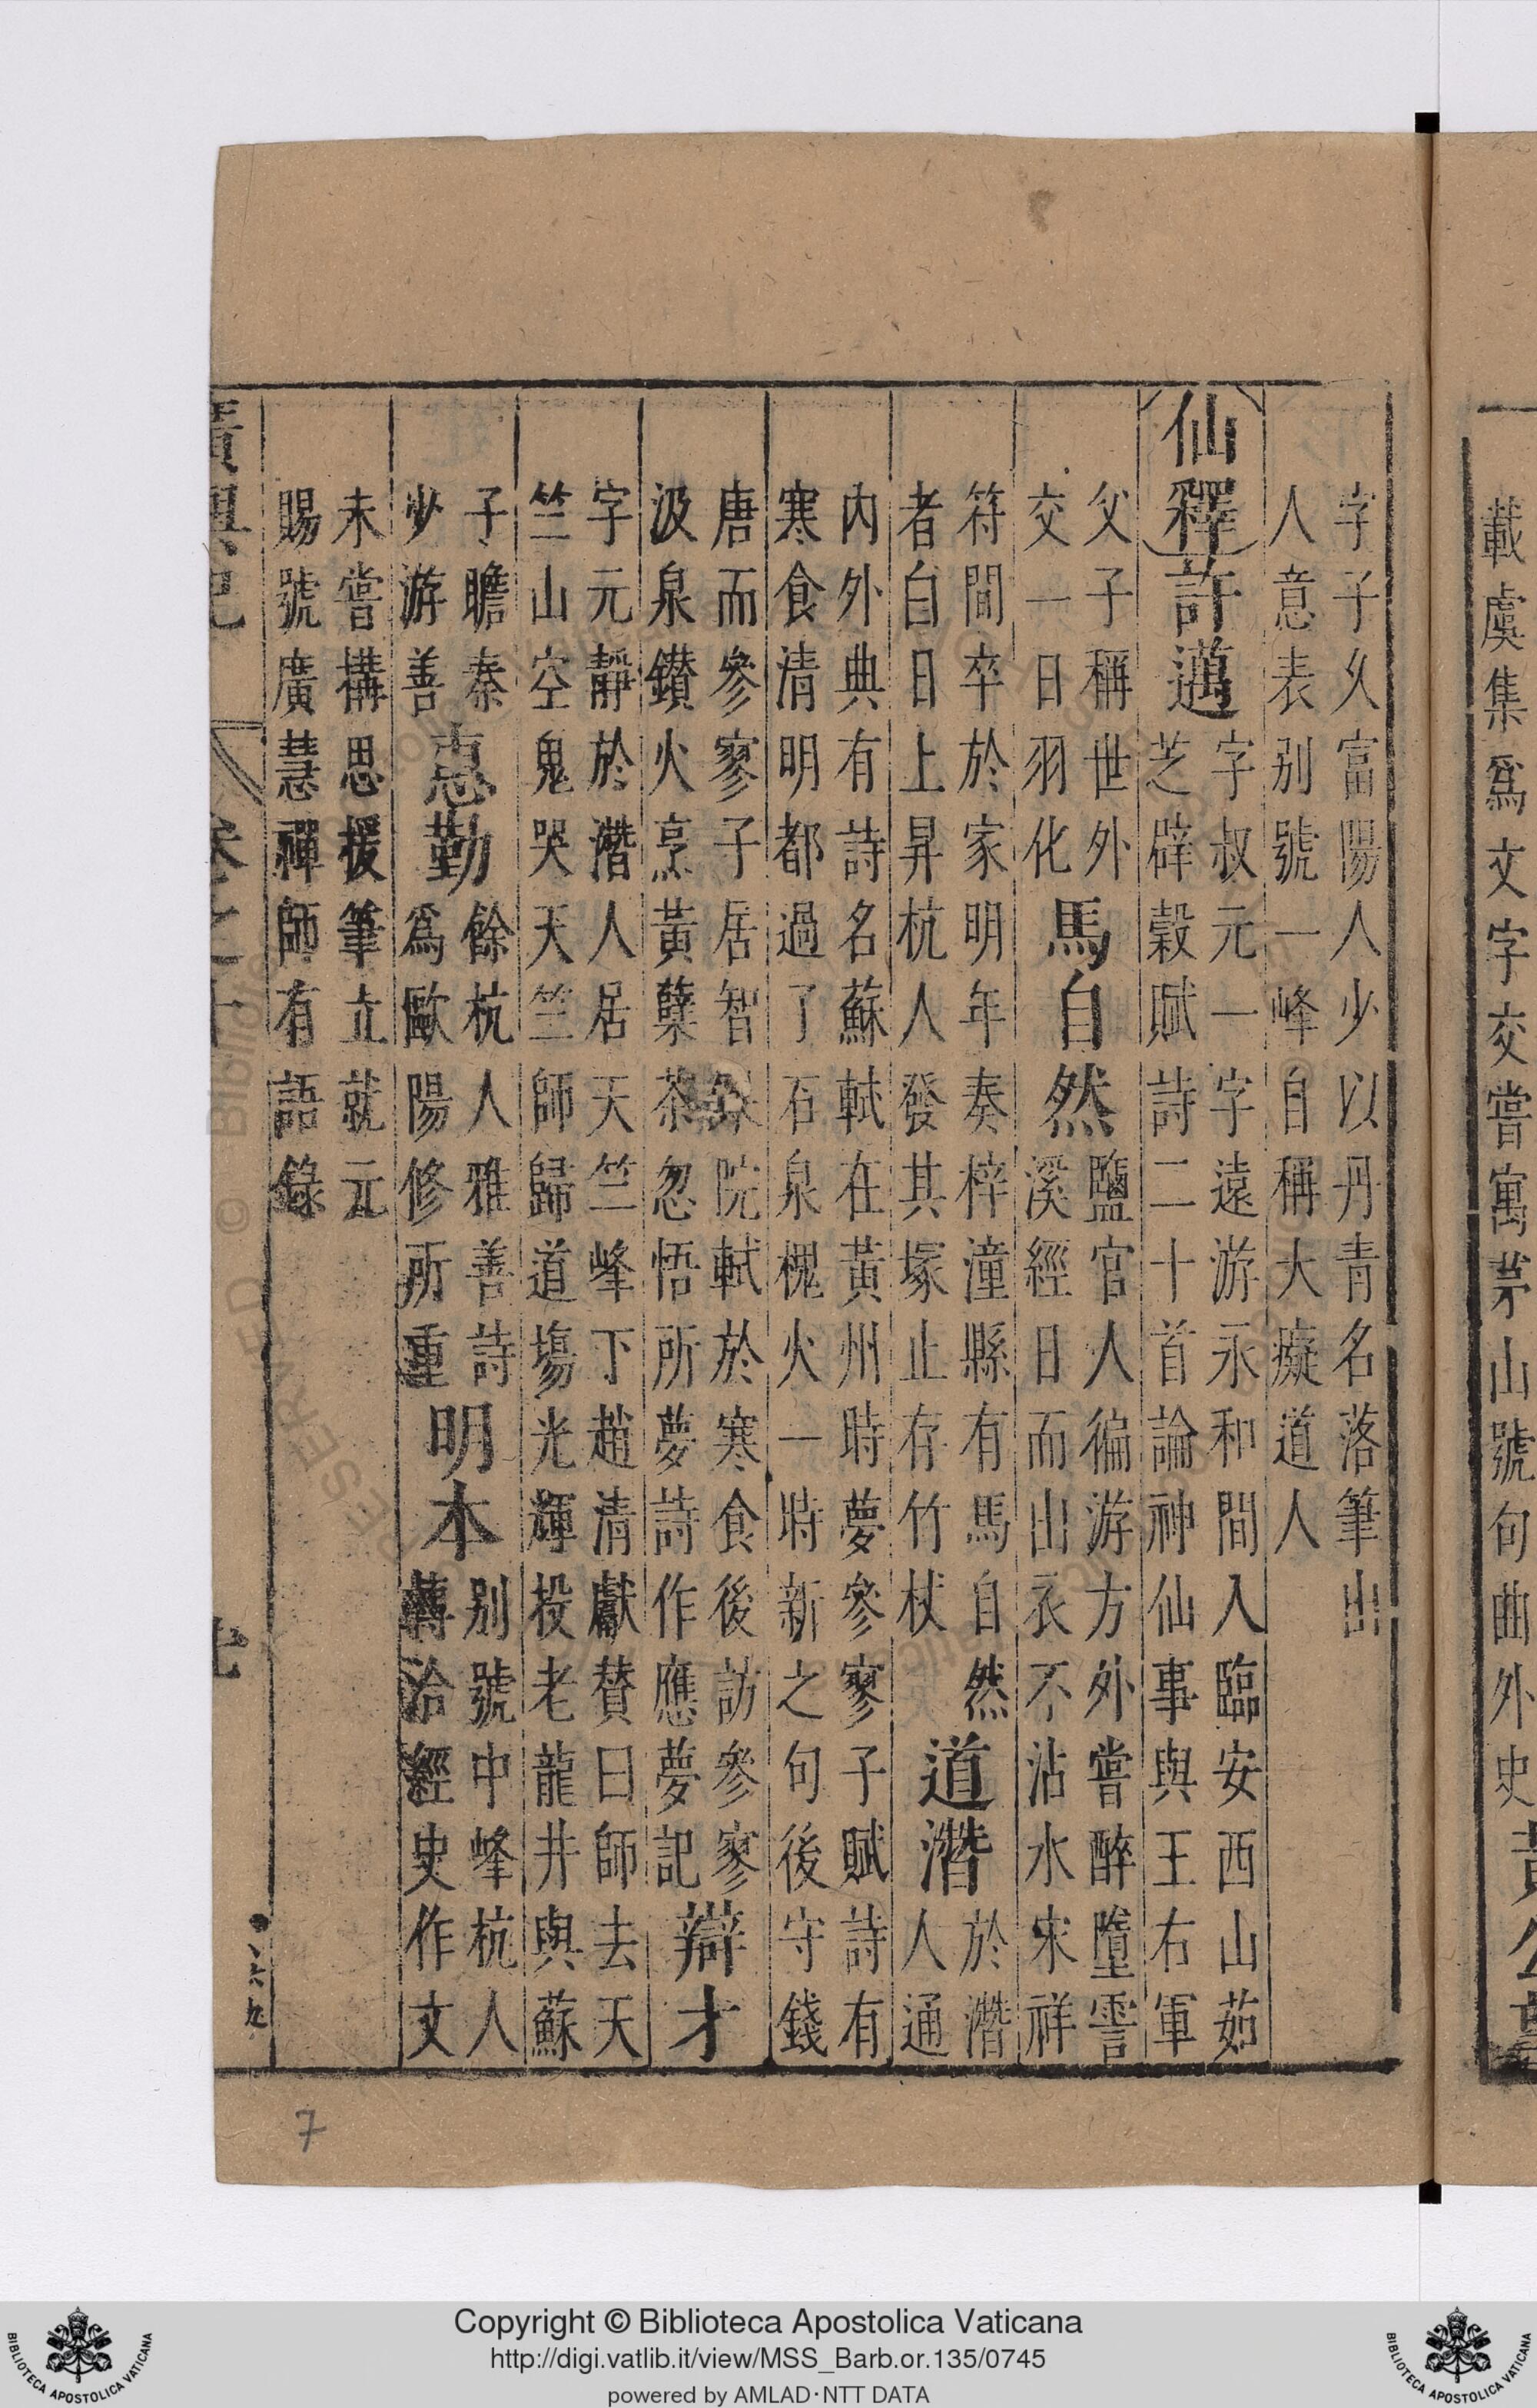 載虞集爲文字交嘗寓茅山號句曲外史黃公
字子久富陽人少以丹青名落筆出
人意表别號一峰自稱大癡道人
仙釋許邁
字叔元一字遠游永和間入臨安西山茹
芝辟穀賦詩二十首論神仙事與王右軍
父子稱世外
交一日羽化
馬自然
鹽官人徧游方外嘗醉墮霅
溪經日而出衣不沾水宋祥
符間卒於家明年奏梓潼縣有馬自然
者白日上昇杭人發其塚止存竹杖
道潛
於潛
人通
内外典有詩名蘇軾在黃州時夢參寥子賦詩有
寒食清明都過了石泉槐火一時新之句後守錢
唐而參寥子居智院軾於寒食後訪參寥
汲泉鑚火烹黃蘖茶忽悟所夢詩作應夢記
辯才
字元靜於潛人居天竺峰下趙清獻贊曰師去天
竺山空鬼哭天竺師歸道塲光輝投老龍井與蘇
子瞻秦
少游善
惠勤
餘杭人雅善詩
爲歐陽修所重
明本
别號中峰杭人
洽經史作文
未嘗構思援筆立就元
賜號廣慧禪師有語錄
廣輿記
卷之十
7
Copyright © Biblioteca Apostolica Vaticana
http://digi.vatlib.it/view/MSS_Barb.or.135/0745
powered by AMLAD·NTT DATA
BIBLIOTECA APOSTOLICA VATICANA
BIBLIOTECA APOSTOLICA VATICANA